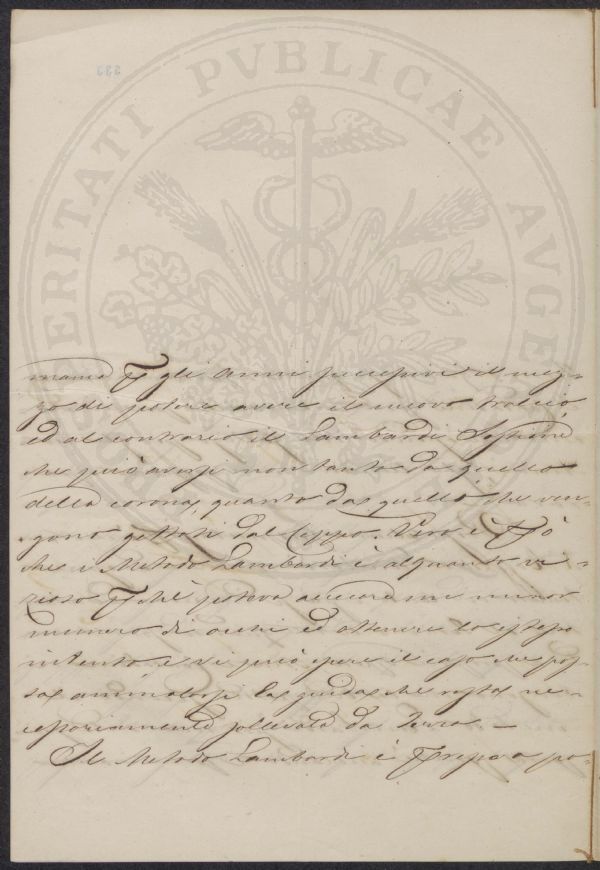 333
PVBLICAE
AVGE
ERITATI
mancà gli Anni successivi il mez-
zo di potere avere il nuovo tralcio,
ed al contrario il Lambardi sostiene
che può aversi non tanto da quello
della corona, quanto da quello che ven-
gono gettati dal Ceppo. Vero è
che i Metodo Lambardi è alquanto vi-
zioso potava accecare un minor
numero di occhi ed ottenere lo stesso
intento e vi può essere il caso che pos-
sa la guida che resta ne-
cessariamente sollevata da Terra. —
Il Metodo Lambardi è a po-